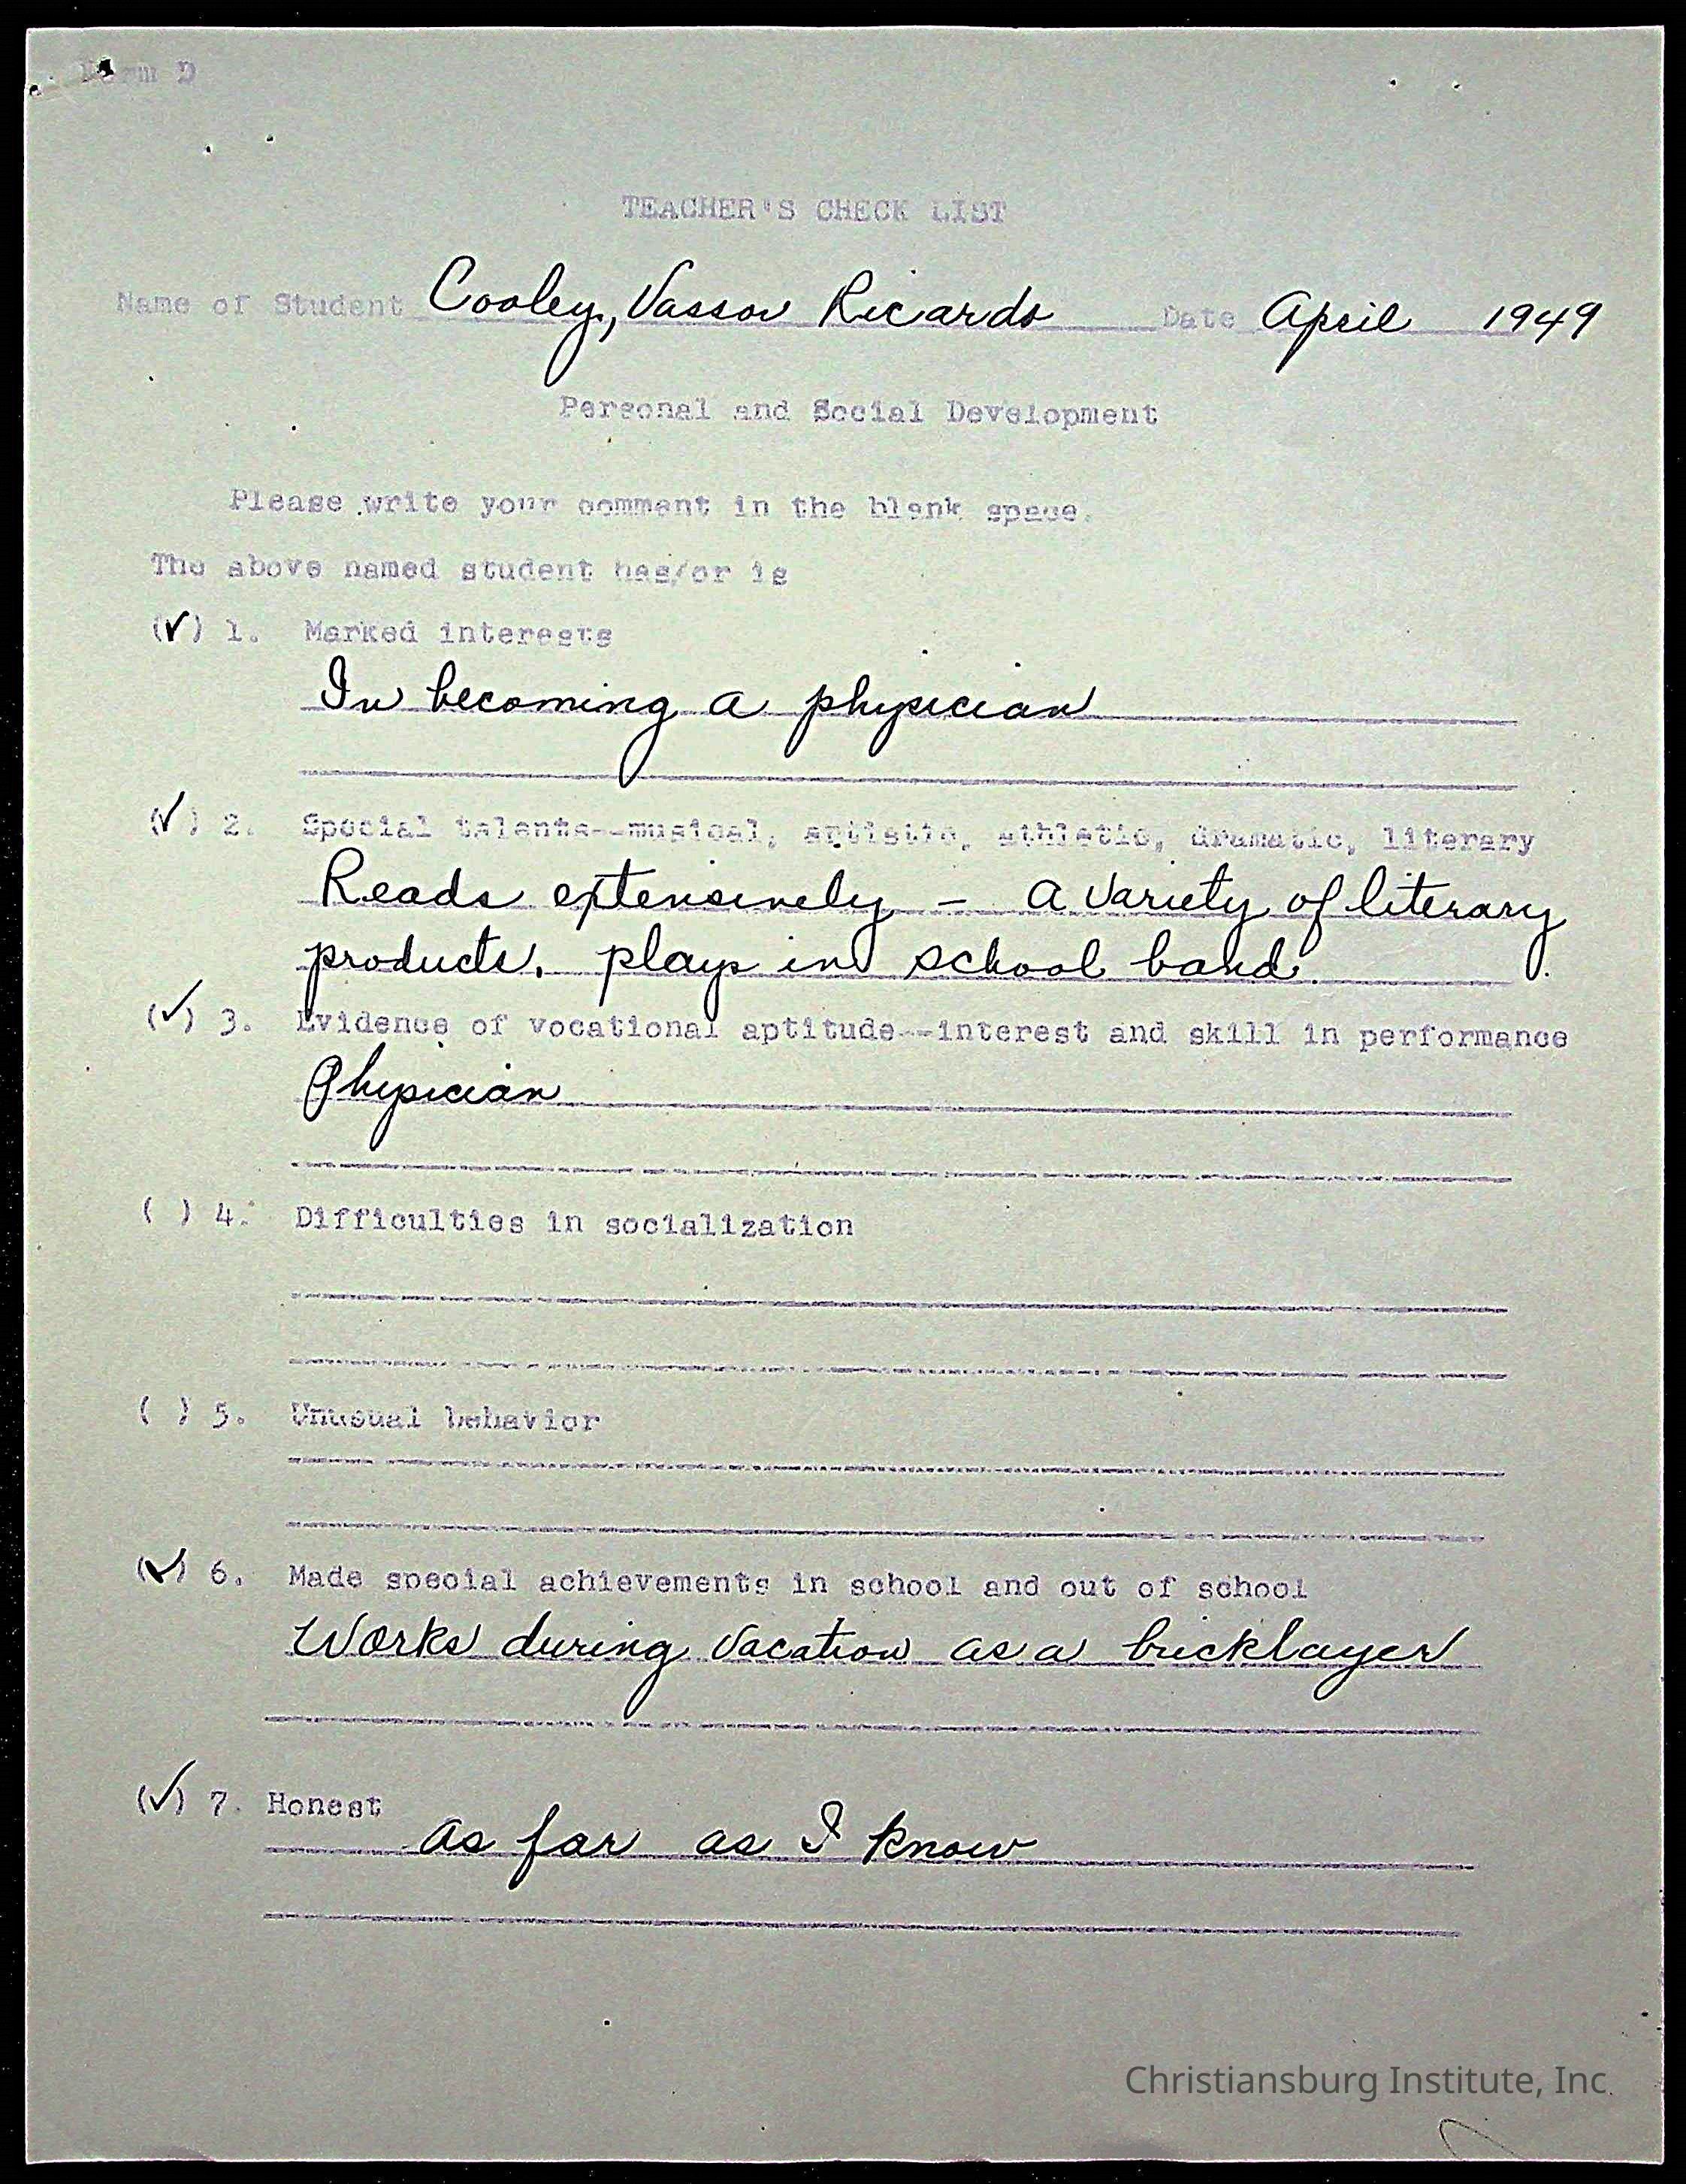 Form D
TEACHER'S CHECK LIST
Name of Student Cooley, Vassor Ricardo Date April 1949
Personal and Social Development
Please write your comment in the blank space.
The above named student has/or is
(✓) 1. Marked interests
In becoming a physician
(✓) 2. Special talents--musical, artistic, athletic, dramatic, literary
Reads extensively - a variety of literary
products. plays in school band.
(✓) 3. Evidence of vocational aptitude--interest and skill in performance
Physician
( ) 4. Difficulties in socialization
( ) 5. Unusual behavior
(✓) 6. Made special achievements in school and out of school
Works during vacation as a bricklayer
(✓) 7. Honest
as far as I know
Christiansburg Institute, Inc.